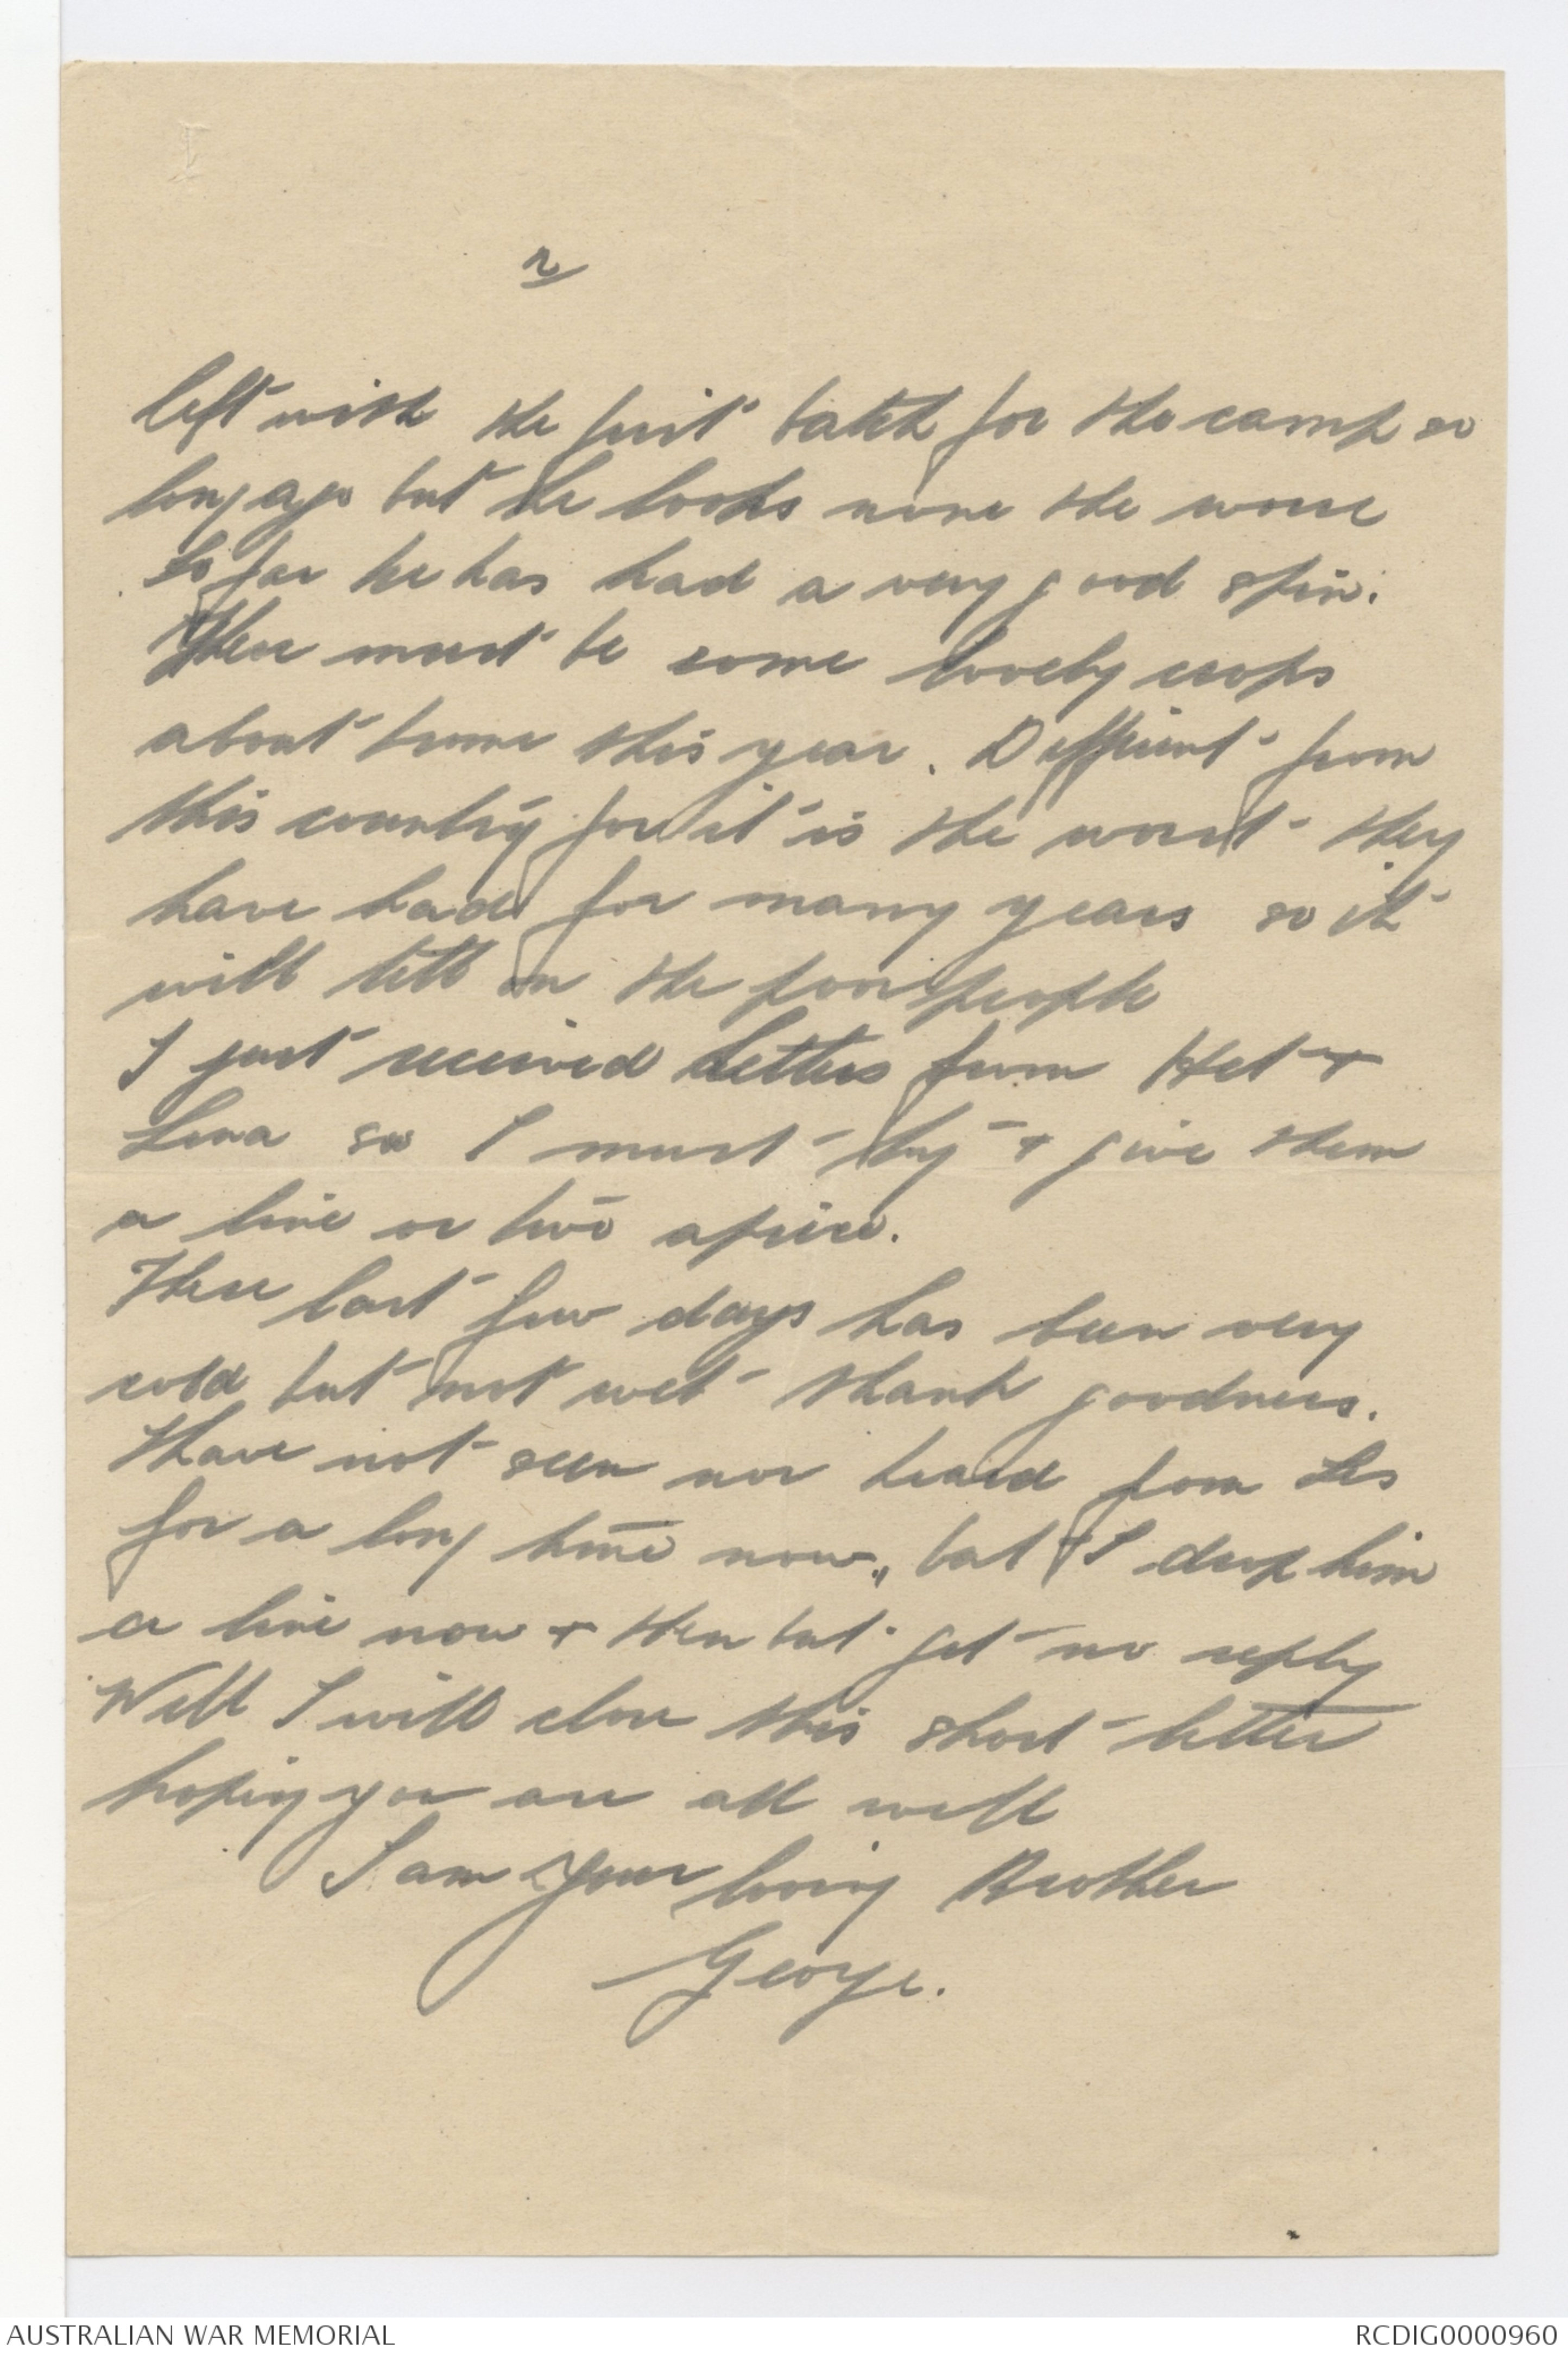 2
left with the first batch for the camp so
long ago but he looks none the worse
So far he has had a very good spin.
There must be some lovely crops
about home this year. Different from
this country for it is the worst they
have had for many years so it
will tell on the poor people
I just received Letters from Het +
Lena so I must try + give them
a line or two apiece.
These last few days has been very
cold but not wet thank goodness.
Have not seen nor heard from Les
for a long time now, but I drop him
a line now + then but get no reply
Well I will close this short letter
hoping you are all well
I am your loving Brother
George.
AUSTRALIAN WAR MEMORIAL
RCDIG0000960